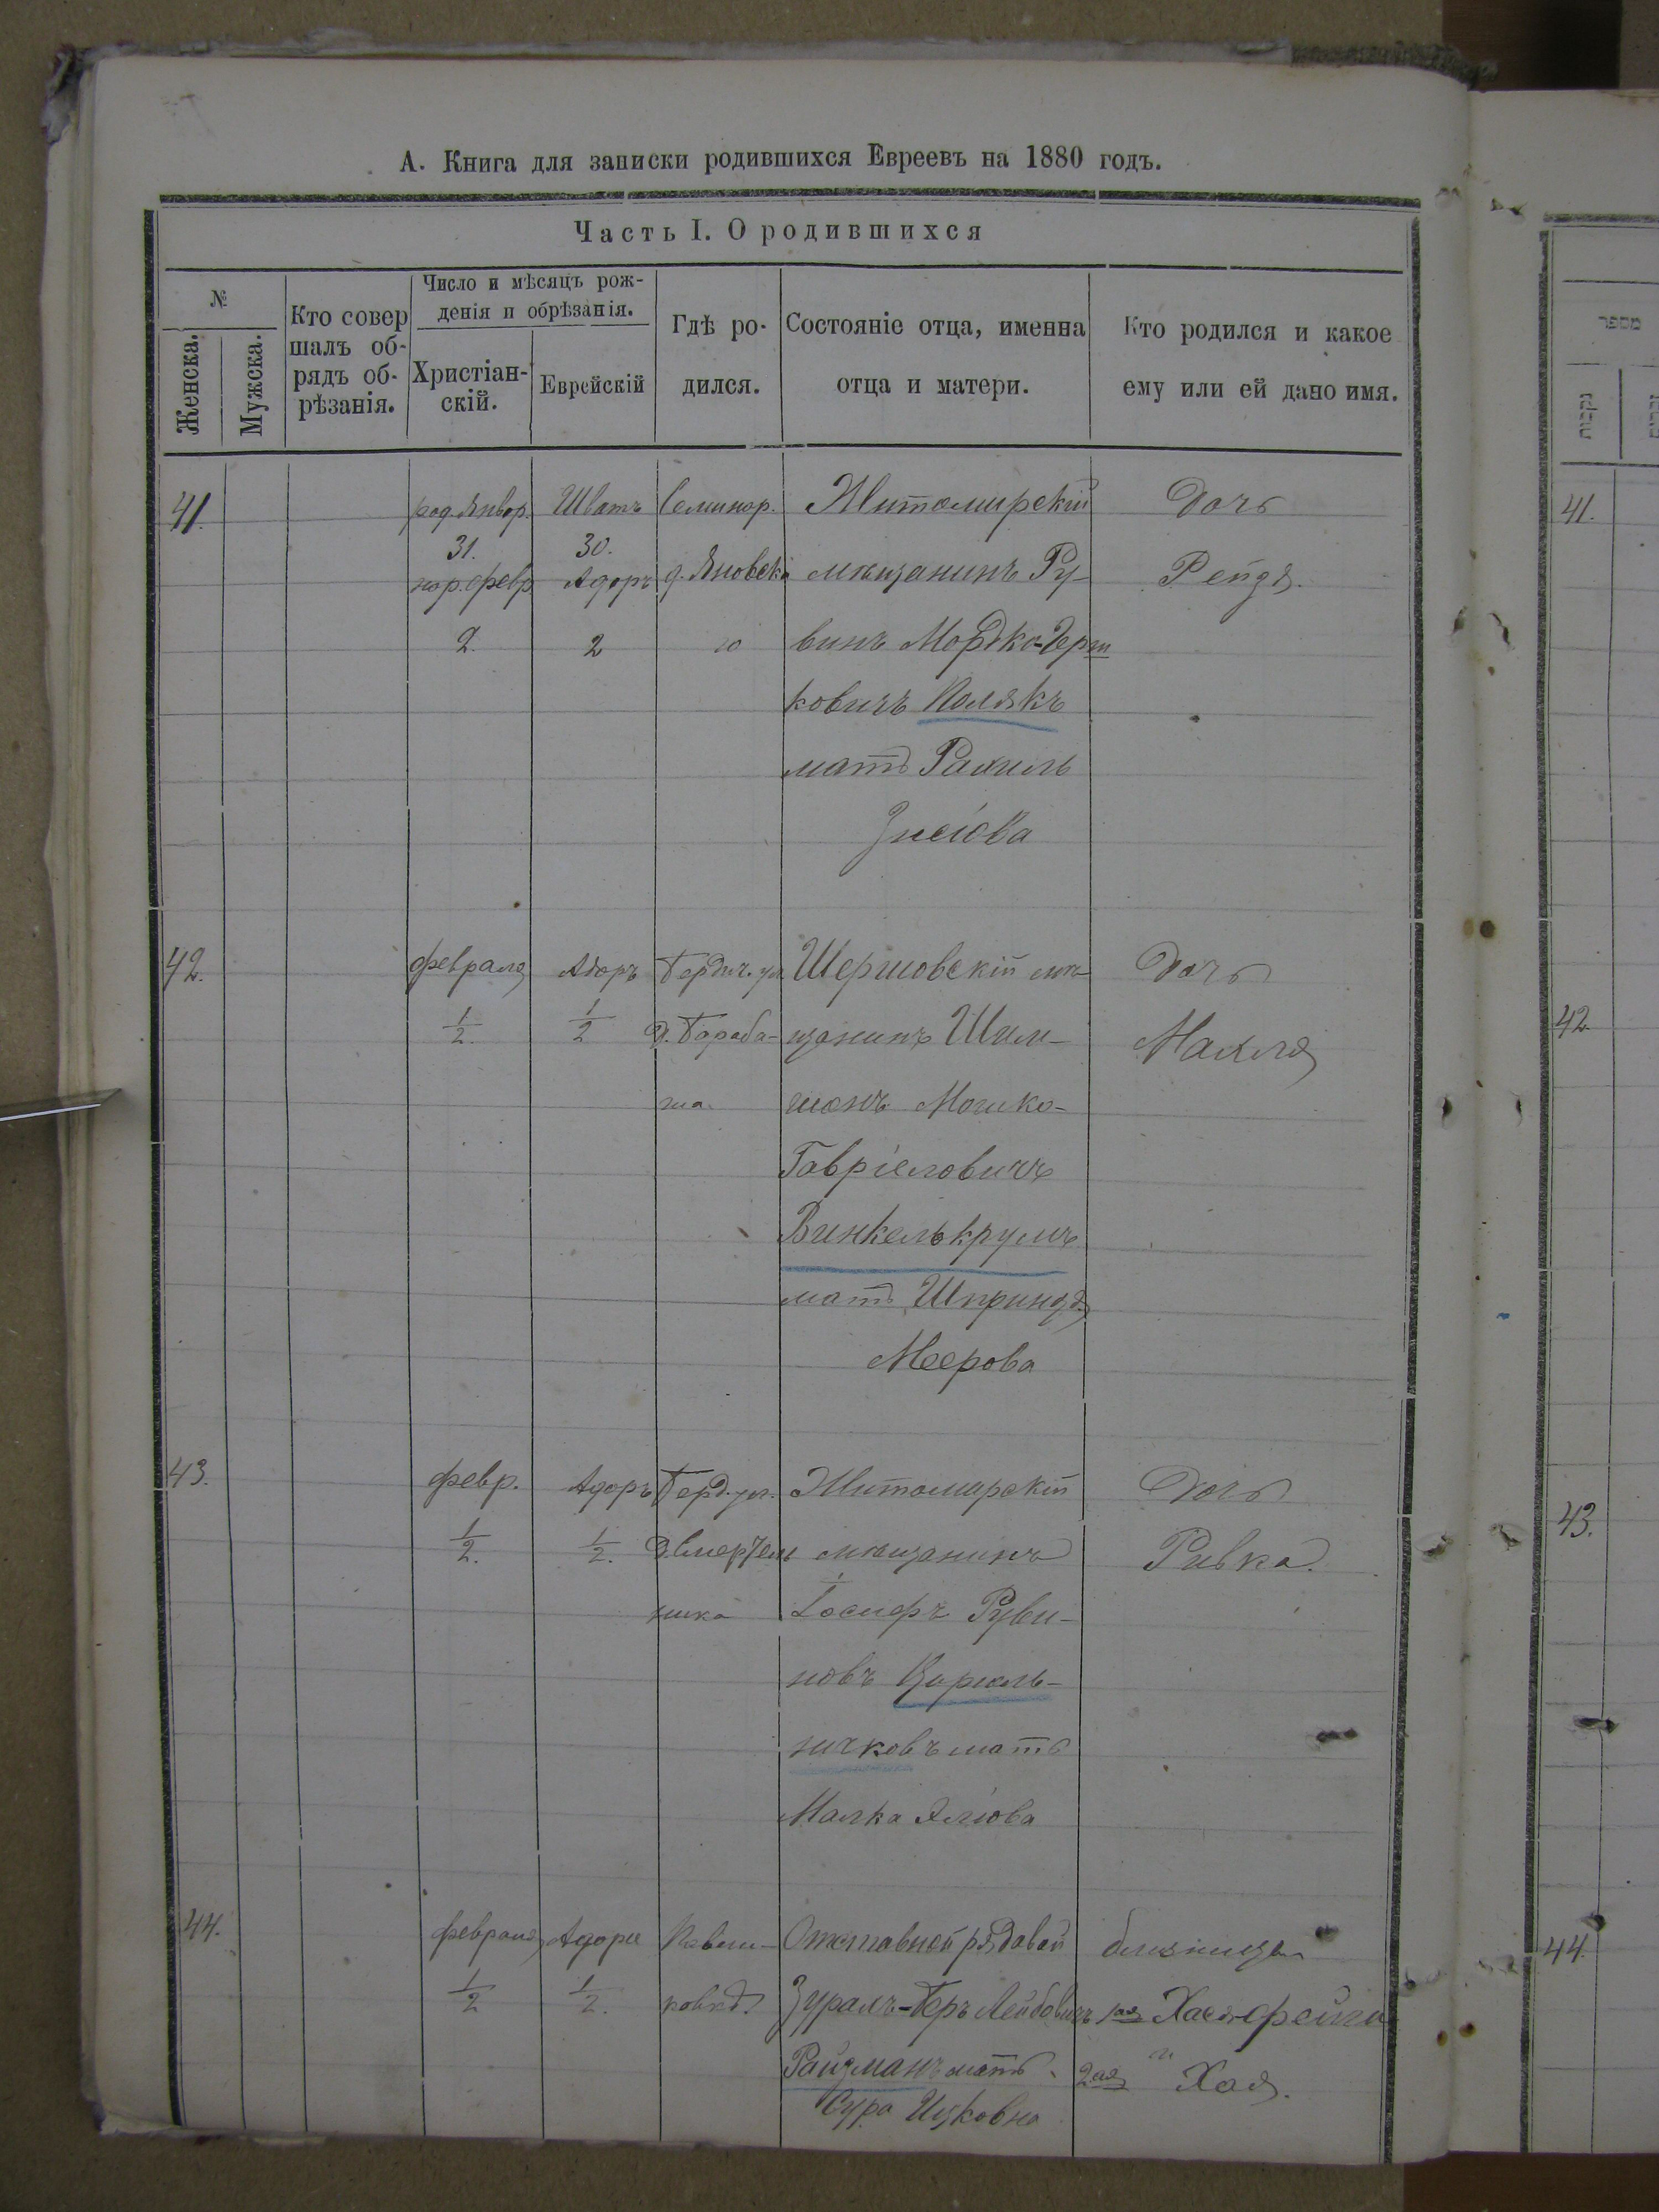 А. Книга для записки родившихся Евреевъ на 1880 годъ.
Часть I. О родившихся
№
Женска.
Мужска.
Кто совер
шалъ об-
рядъ об-
рѣзанія.
Число и мѣсяцъ рож-
денія и обрѣзанія.
Христіан-
скій.
Еврейскій
Гдѣ ро-
дился.
Состояніе отца, именна
отца и матери.
Кто родился и какое
ему или ей дано имя.
41.
род. Январ.
31.
нар. февр
2.
Шватъ
30.
Адаръ
2
Семинар.
д. Яновска
го
Житомирскій
мѣщанинъ Ру-
винъ Мордко-Герш
ковичъ Полякъ
мать Рахиль
Зисіова
Дочь
Рейзя.
42.
февраля
1/2.
Адаръ
1/2
Бердич. ул
д. Бараба-
ша.
Шершовскій мѣ-
щанинъ Шим-
шонъ Мошко-
Гавріеловичъ
Винкелькрумъ
мать Шприндзя
Меерова
Дочь
Махля
43.
февр.
1/2.
Адаръ
1/2.
Берд. ул.
ника
Житомирскій
мѣщанинъ
Іосифъ Руви-
новъ
мать
Малка Эліова
Дочь
Ривка.
44.
февраля
1/2
Адара
1/2.
Отставной рядовой
Лейбовичъ
Райзманъ мать
Сура Ицковна
близнецы
1ая Хася-фейга
и
2ая Хая.
מספר
נקבות
41.
42.
43.
44.